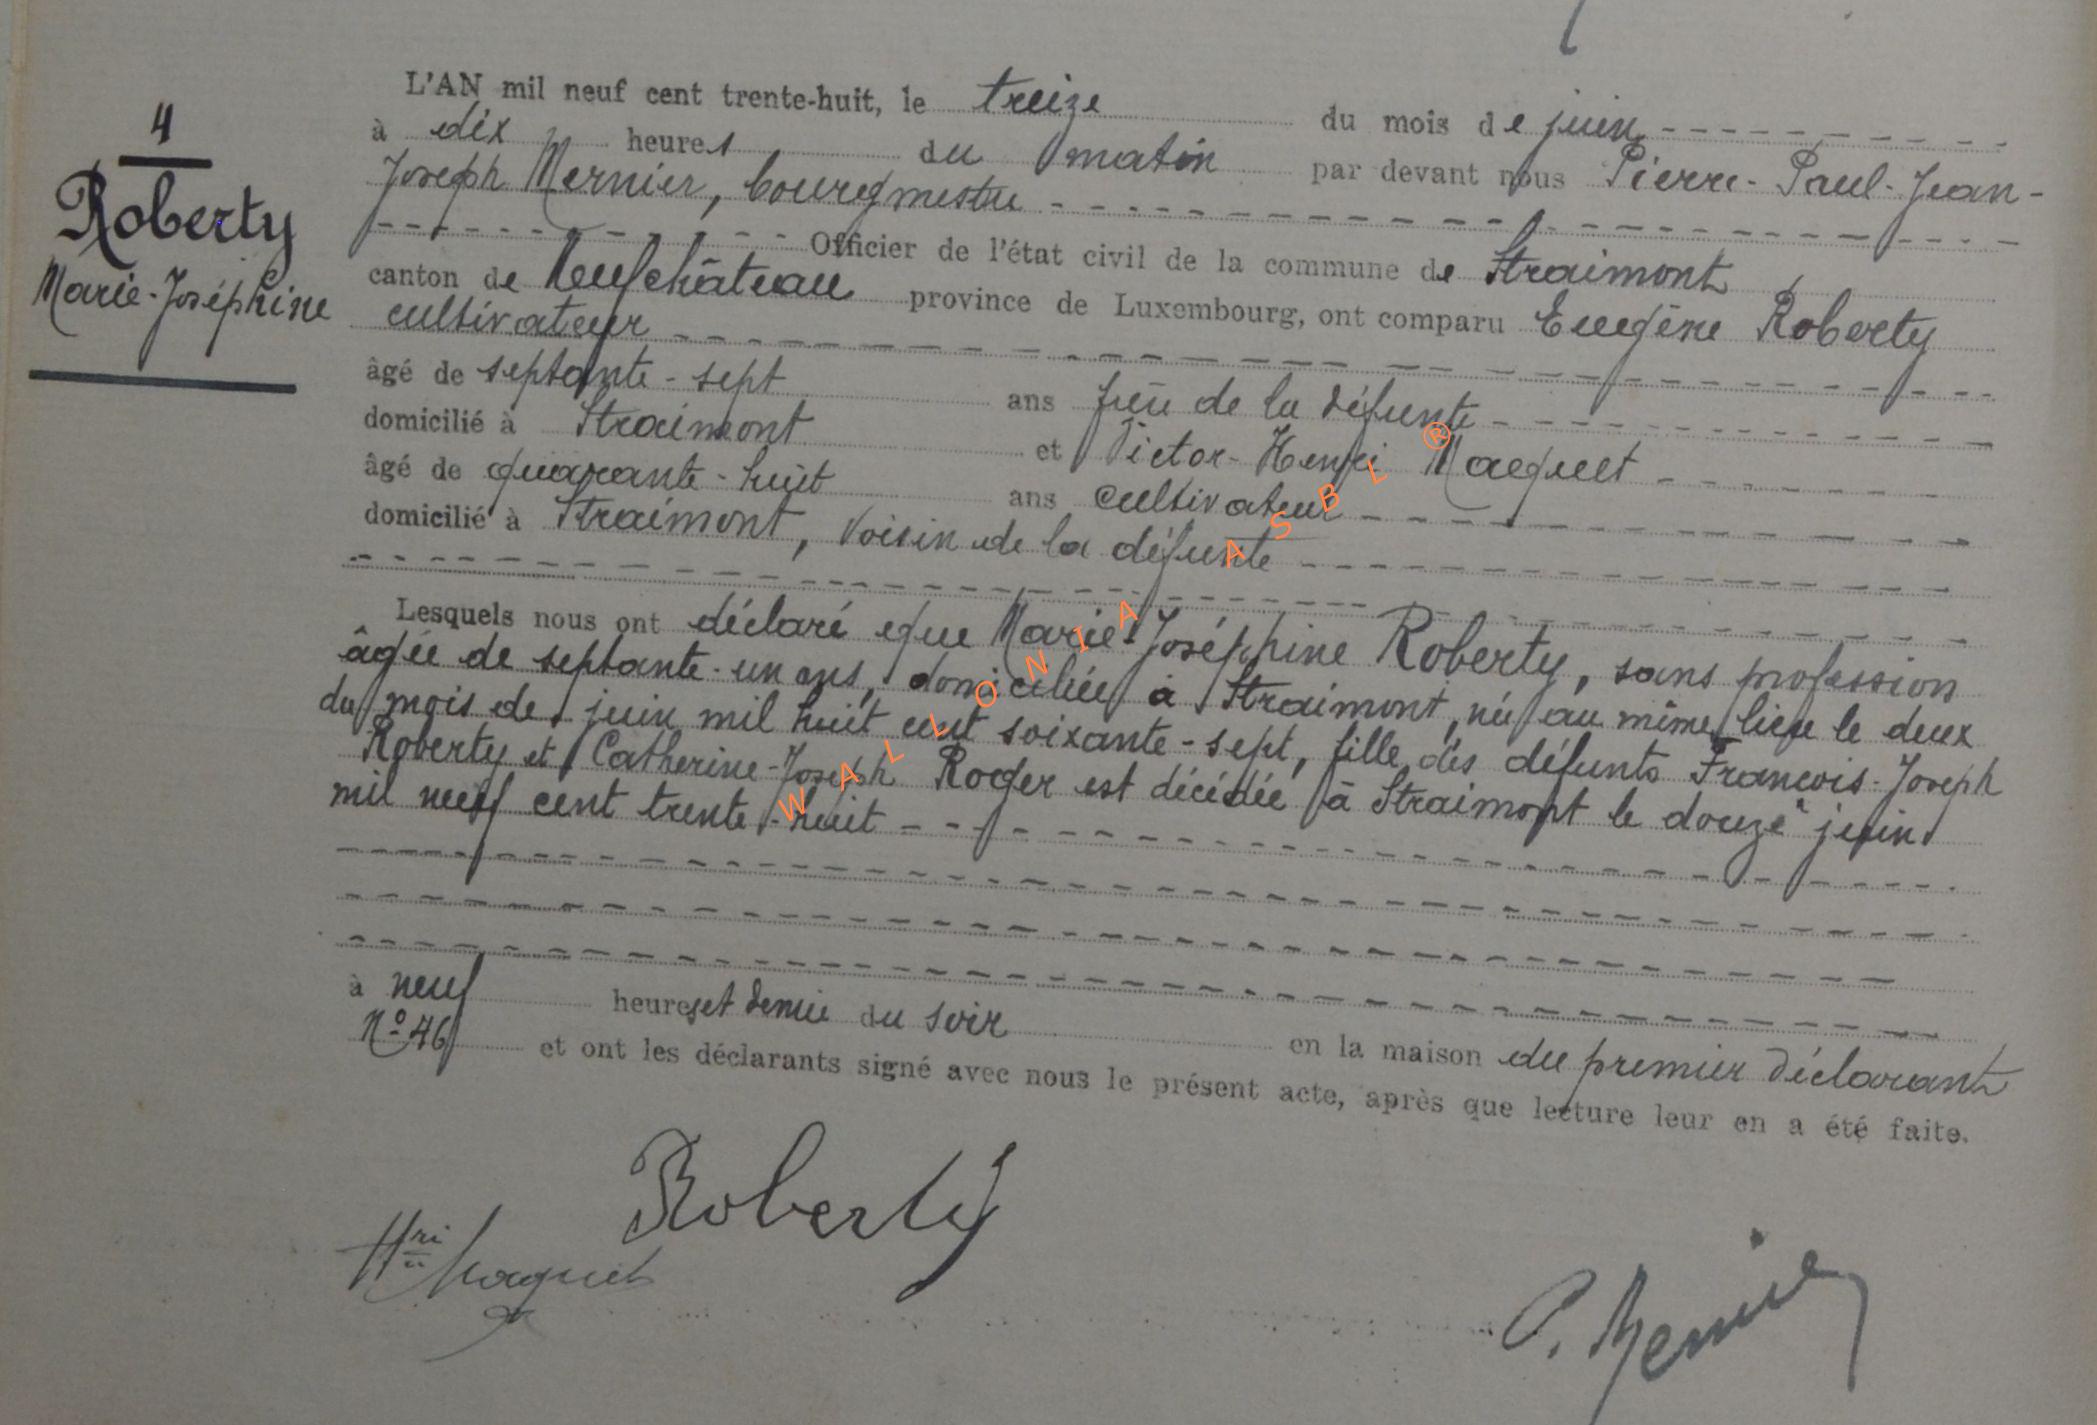 4
Roberty
Marie-Joséphine
L'AN mil neuf cent trente-huit, le treize du mois de juin
à dix heures du matin par devant nous Pierre-Paul-Jean-
Joseph Mernier, bourgmestre
Officier de l'état civil de la commune de Straimont
canton de Neufchâteau province de Luxembourg, ont comparu Eugène Roberty
cultivateur
âgé de septante-sept ans frère de la défunte
domicilié à Straimont et Victor-Henri Maquet
âgé de quarante-huit ans cultivateur
domicilié à Straimont, voisin de la défunte
Lesquels nous ont déclaré que Marie-Joséphine Roberty, sans profession
âgée de septante-un ans, domiciliée à Straimont, née au même lieu le deux
du mois de juin mil huit cent soixante-sept, fille des défunts François-Joseph
Roberty et Catherine-Joseph Roger est décédée à Straimont le douze juin
mil neuf cent trente-huit
à neuf heures et demie du soir en la maison du premier déclarant
N° 46 et ont les déclarants signé avec nous le présent acte, après que lecture leur en a été faite.
Roberty
Hri Maquet
P. Mernier
WALLONIA ASBL ®